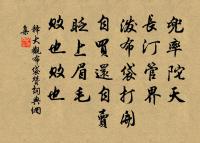 兜率陀天
長汀管界
潑布袋打開
自買還自賣
眨上眉毛
敗也敗也
釋大觀布袋贊詞典網
集